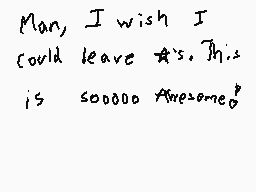 Man, I wish I
could leave ★'s. This
is sooooo Awesome!